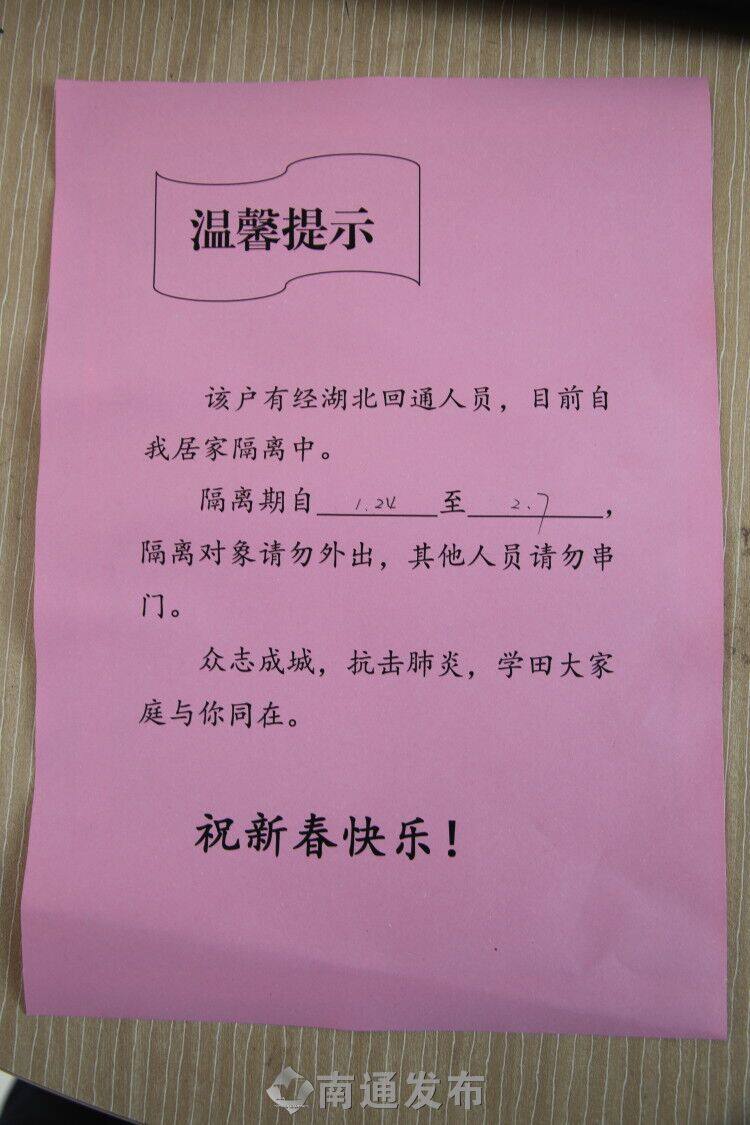 温馨提示
该户有经湖北回通人员，目前自
我居家隔离中。
隔离期自 1.24 至 2.7 ，
隔离对象请勿外出，其他人员请勿串
门。
众志成城，抗击肺炎，学田大家
庭与你同在。
祝新春快乐！
南通发布